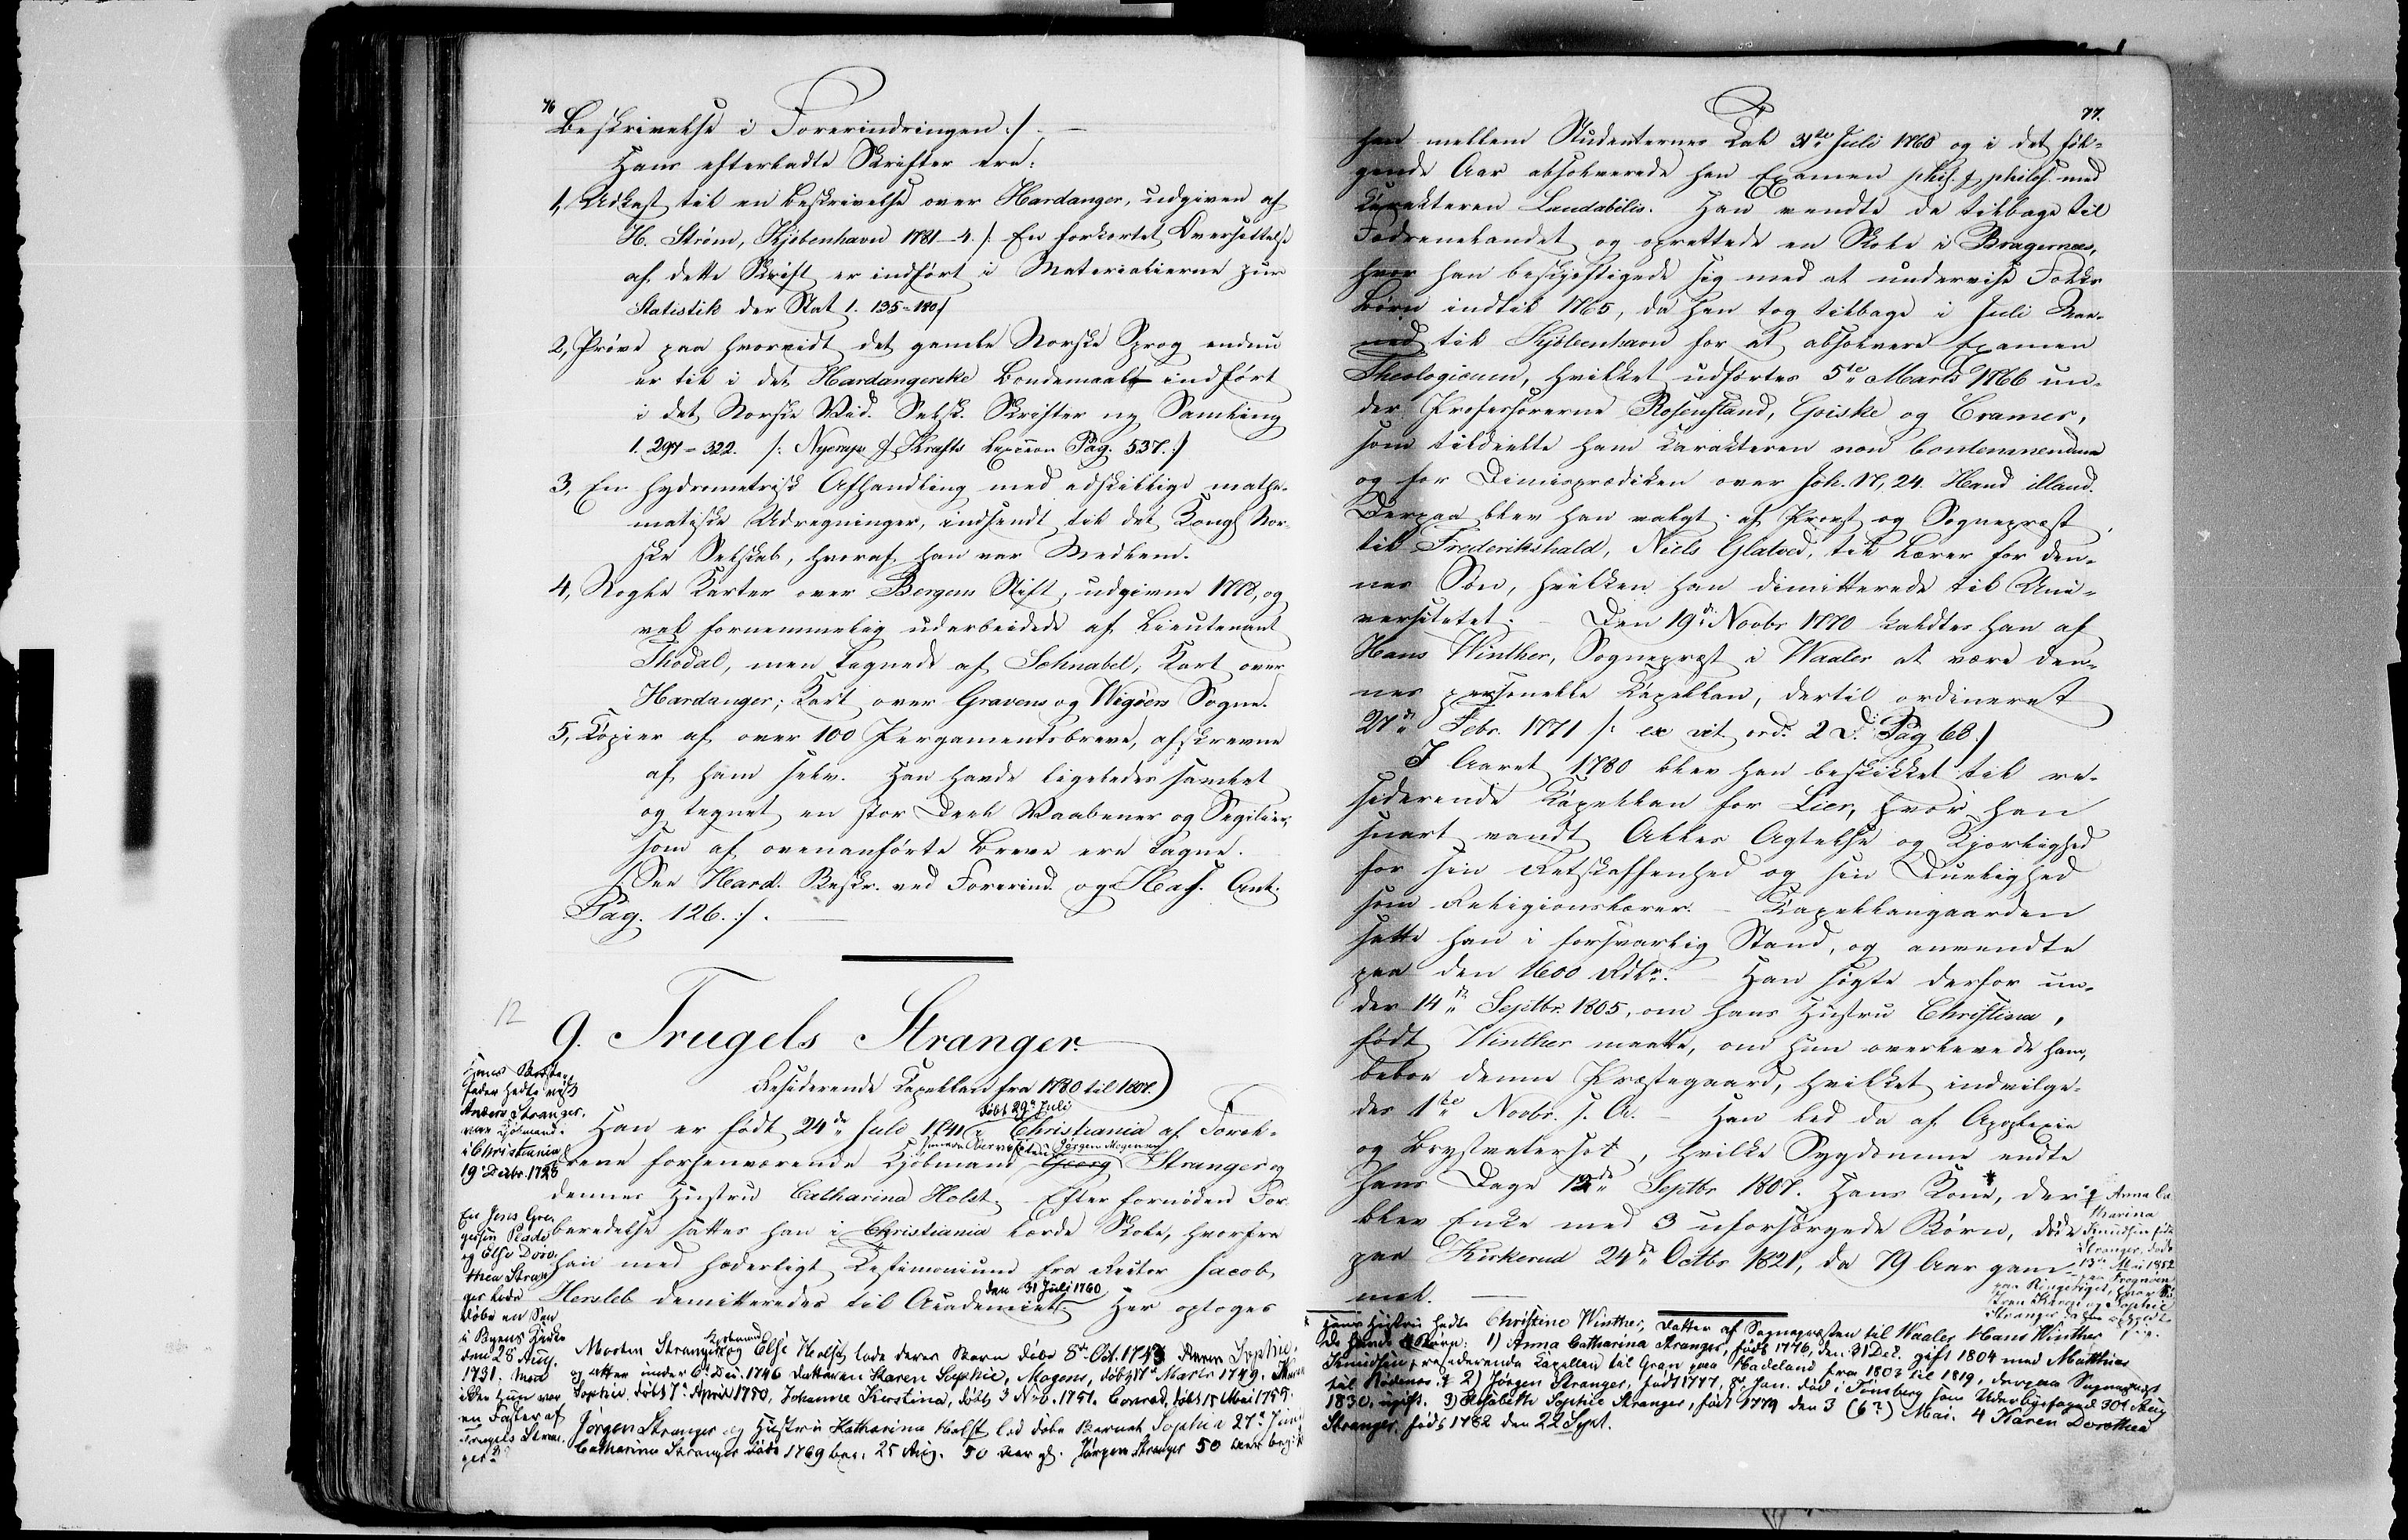 76
Beskrivelse i Forerindringen :/. —
Hans efterladte Skrifter ere:
1, Udkast til en Beskrivelse over Hardanger, udgiven af
H. Strøm, Kjøbenhavn 1781-4. /: En forkortet Oversættelse
af dette Skrift er indført i Materialierne zur
Statistik der Stat 1. 135=180/
2, Prøve paa hvorvidt det gamle Norske Sprog endnu
er til i det Hardangerske Bondemaal indført
i det Norske Vid. Selsk. Skrifter ny Samling
1. 297=322. /: Nyerups & Krafts Lexicon Pag. 537.:/
3, En hydrometrisk Afhandling med adskillige mathe-
matiske Udregninger, indsendt til det Kongl Nor-
ske Selskab, hvoraf han var Medlem.
4, Nogle Karter over Bergens Stift, udgivne 1778, og
vel fornemmelig udarbeidede af Lieutenant
Thodal, men tegnede af Schnabel; Kart over
Hardanger; Kart over Gravens og Wigøers Sogne.
5, Copier af over 100 Pergamentsbreve, afskrevne
af ham selv. Han havde ligeledes samlet
og tegnet en stor Deel Vaabener og Segilier,
som af ovenanførte Breve ere tagne.
/: See Hard. Beskr. ved Forerind. og Ant.
Pag. 126. :/. —
12
9. Trugels Stranger.
Residerende Capellan fra 1780 til 1807.
døbt 29de Juli
Han er født 24de Juli 1741 i Christiania af Foræl-
Jørgen Mogensen
drene forhenværende Kjøbmand Georg Stranger og
dennes Hustru Catharina Holst. Efter fornøden For-
beredelse sattes han i Christiania lærde Skole, hvorfra
han med hæderligt Testimonium fra Rector Jacob
den 31 Juli 1760
Hersleb demitteredes til Academiet. Her optoges
fader hedte
Anders Stranger,
var Kjøbmand
i Christiania
19 Decbr. 1728
En Jens Gre-
gersen
og Else Doro-
thea Stran-
ger lode
døbe en Søn
i Byens Kirke
den 28 Aug.
1731. Mon
ikke hun var
en Faster af
Trugels Stran-
ger?
Kjøbmand
Morten Stranger og Else Holst lode deres Barn døbe 8de Oct. 1745
og atter under 6te Dec. 1746 Datteren Karen Sophie, Mogens, døbt 17de Marts 1749,
Sophie døbt 7de April 1750, Johanne Kirstina, døbt 3 Nov. 1751. Conrad, døbt 15 Mai 1755.
Jørgen Stranger og Hustru Katharina Holst lod døbe Barnet Sophia 27de Juni
Catharina Stranger døde 1769 beg. 25 Aug. 50 Aar gl. Jørgen Stranger 50 Aar
77.
han mellem Studenternes Tal 31te Juli 1760 og i det føl-
gende Aar absolverede han Examen phil. & philol. med
Karakteren Laudabilis. Han vendte da tilbage til
Fødrenelandet og oprettede en Skole i Bragernæs,
hvor han beskjæftigede sig med at undervise Folks
Børn indtil 1765, da han tog tilbage i Juli Maa-
ned til Kjøbenhavn for at absolvere Examen
Theologicum, hvilket udførtes 5te Marts 1766 un-
der Professorerne Rosenstand, Goiske og Cramer,
som tildeelte ham Karakteren non contemnendum
og for Dimisprædiken over Joh. 17, 24. Haud illaud.
Derpaa blev han valgt af Provst og Sognepræst
til Frederikshald, Niels Glatved, til Lærer for den-
nes Søn, hvilken han dimitterede til Uni-
versitetet. — Den 19de Novbr 1770 kaldtes han af
Hans Winther, Sognepræst i Waaler at være den-
nes personelle Capellan, dertil ordineret
27de Febr. 1771 /: ex vit. ord. 2 D. Pag 68./
I Aaret 1780 blev han beskikket til re-
siderende Capellan for Lier, hvor han
snart vandt Alles Agtelse og Kjærlighed
for sin Retskaffenhed og sin Duelighed
som Religionslærer. — Capellangaarden
satte han i forsvarlig Stand, og anvendte
paa den 1600 Rdlr. — Han søgte derfor un-
der 14de Septbr. 1805, om hans Hustru Christina,
født Winther maatte, om hun overlevede ham,
beboe denne Præstegaard, hvilket indvilge-
des 1te Novbr. s. A. — Han led da af Apoplexie
og Brystvatersot, hvilke Sygdomme endte
hans Dage 12de Septbr 1807. Hans Kone, der
blev Enke med 3 uforsørgede Børn, døde
paa Kirkerud 24de Octbr 1821, da 79 Aar gam-
mel. —
Anna Ca-
tharina
Knudsen født
Stranger, døde
13de Mai 1852
paa Frognøen
paa Ringerige, hvor
Karen og Sophie
Hans Hustru hedte Christine Winther, Datter af Sognepræsten til Waaler Hans Winther
De havde Børn: 1) Anna Catharina Stranger, født 1776, den 31 Dec. gift 1804 med Matthias
Knudsen, residerende Capellan til Gran paa Hadeland fra 1803 til 1819, derpaa Sognepræst
til Rødenes. 2) Jørgen Stranger, født 1777, 8de Jan. død i Tønsberg som 30te Aug
1830, ugift. 3) Elisabeth Sophie Stranger, født 1779 den 3 (6?) Mai. 4 Karen Dorothea
Stranger, født 1782 den 22 Sept.